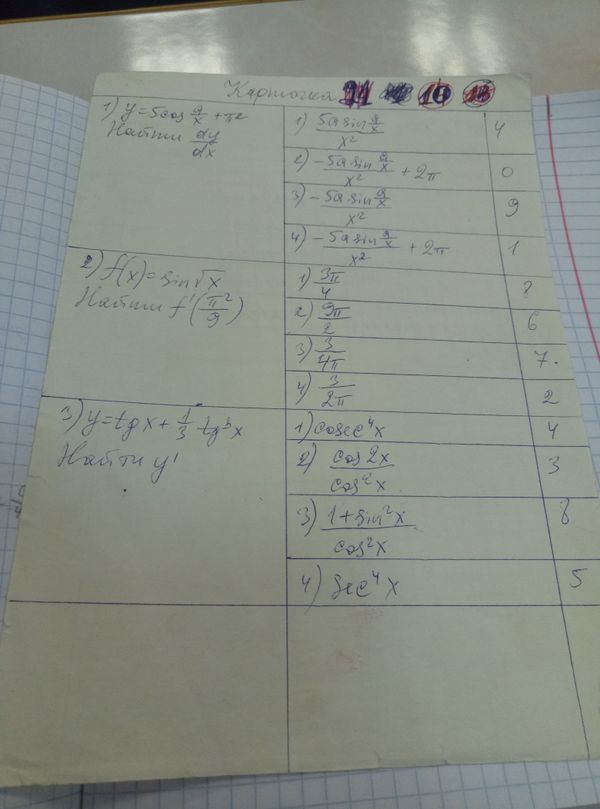 Карточка 10
1) y = 5cos a/x + π²
Найти dy/dx
1) 5a sin a/x / x² 4
2) -5a sin a/x / x² + 2π 0
3) -5a sin a/x / x² 9
4) -5a sin a/x / x² + 2π 1
2) f(x) = sin√x
Найти f'(π²/9)
1) 3π/4 8
2) 9π/2 6
3) 3/4π 7.
4) 3/2π 2
3) y = tg x + 1/3 tg³x
Найти y'
1) cosec⁴x 4
2) cos2x / cos²x 3
3) 1 + sin²x / cos²x 8
4) sec⁴x 5